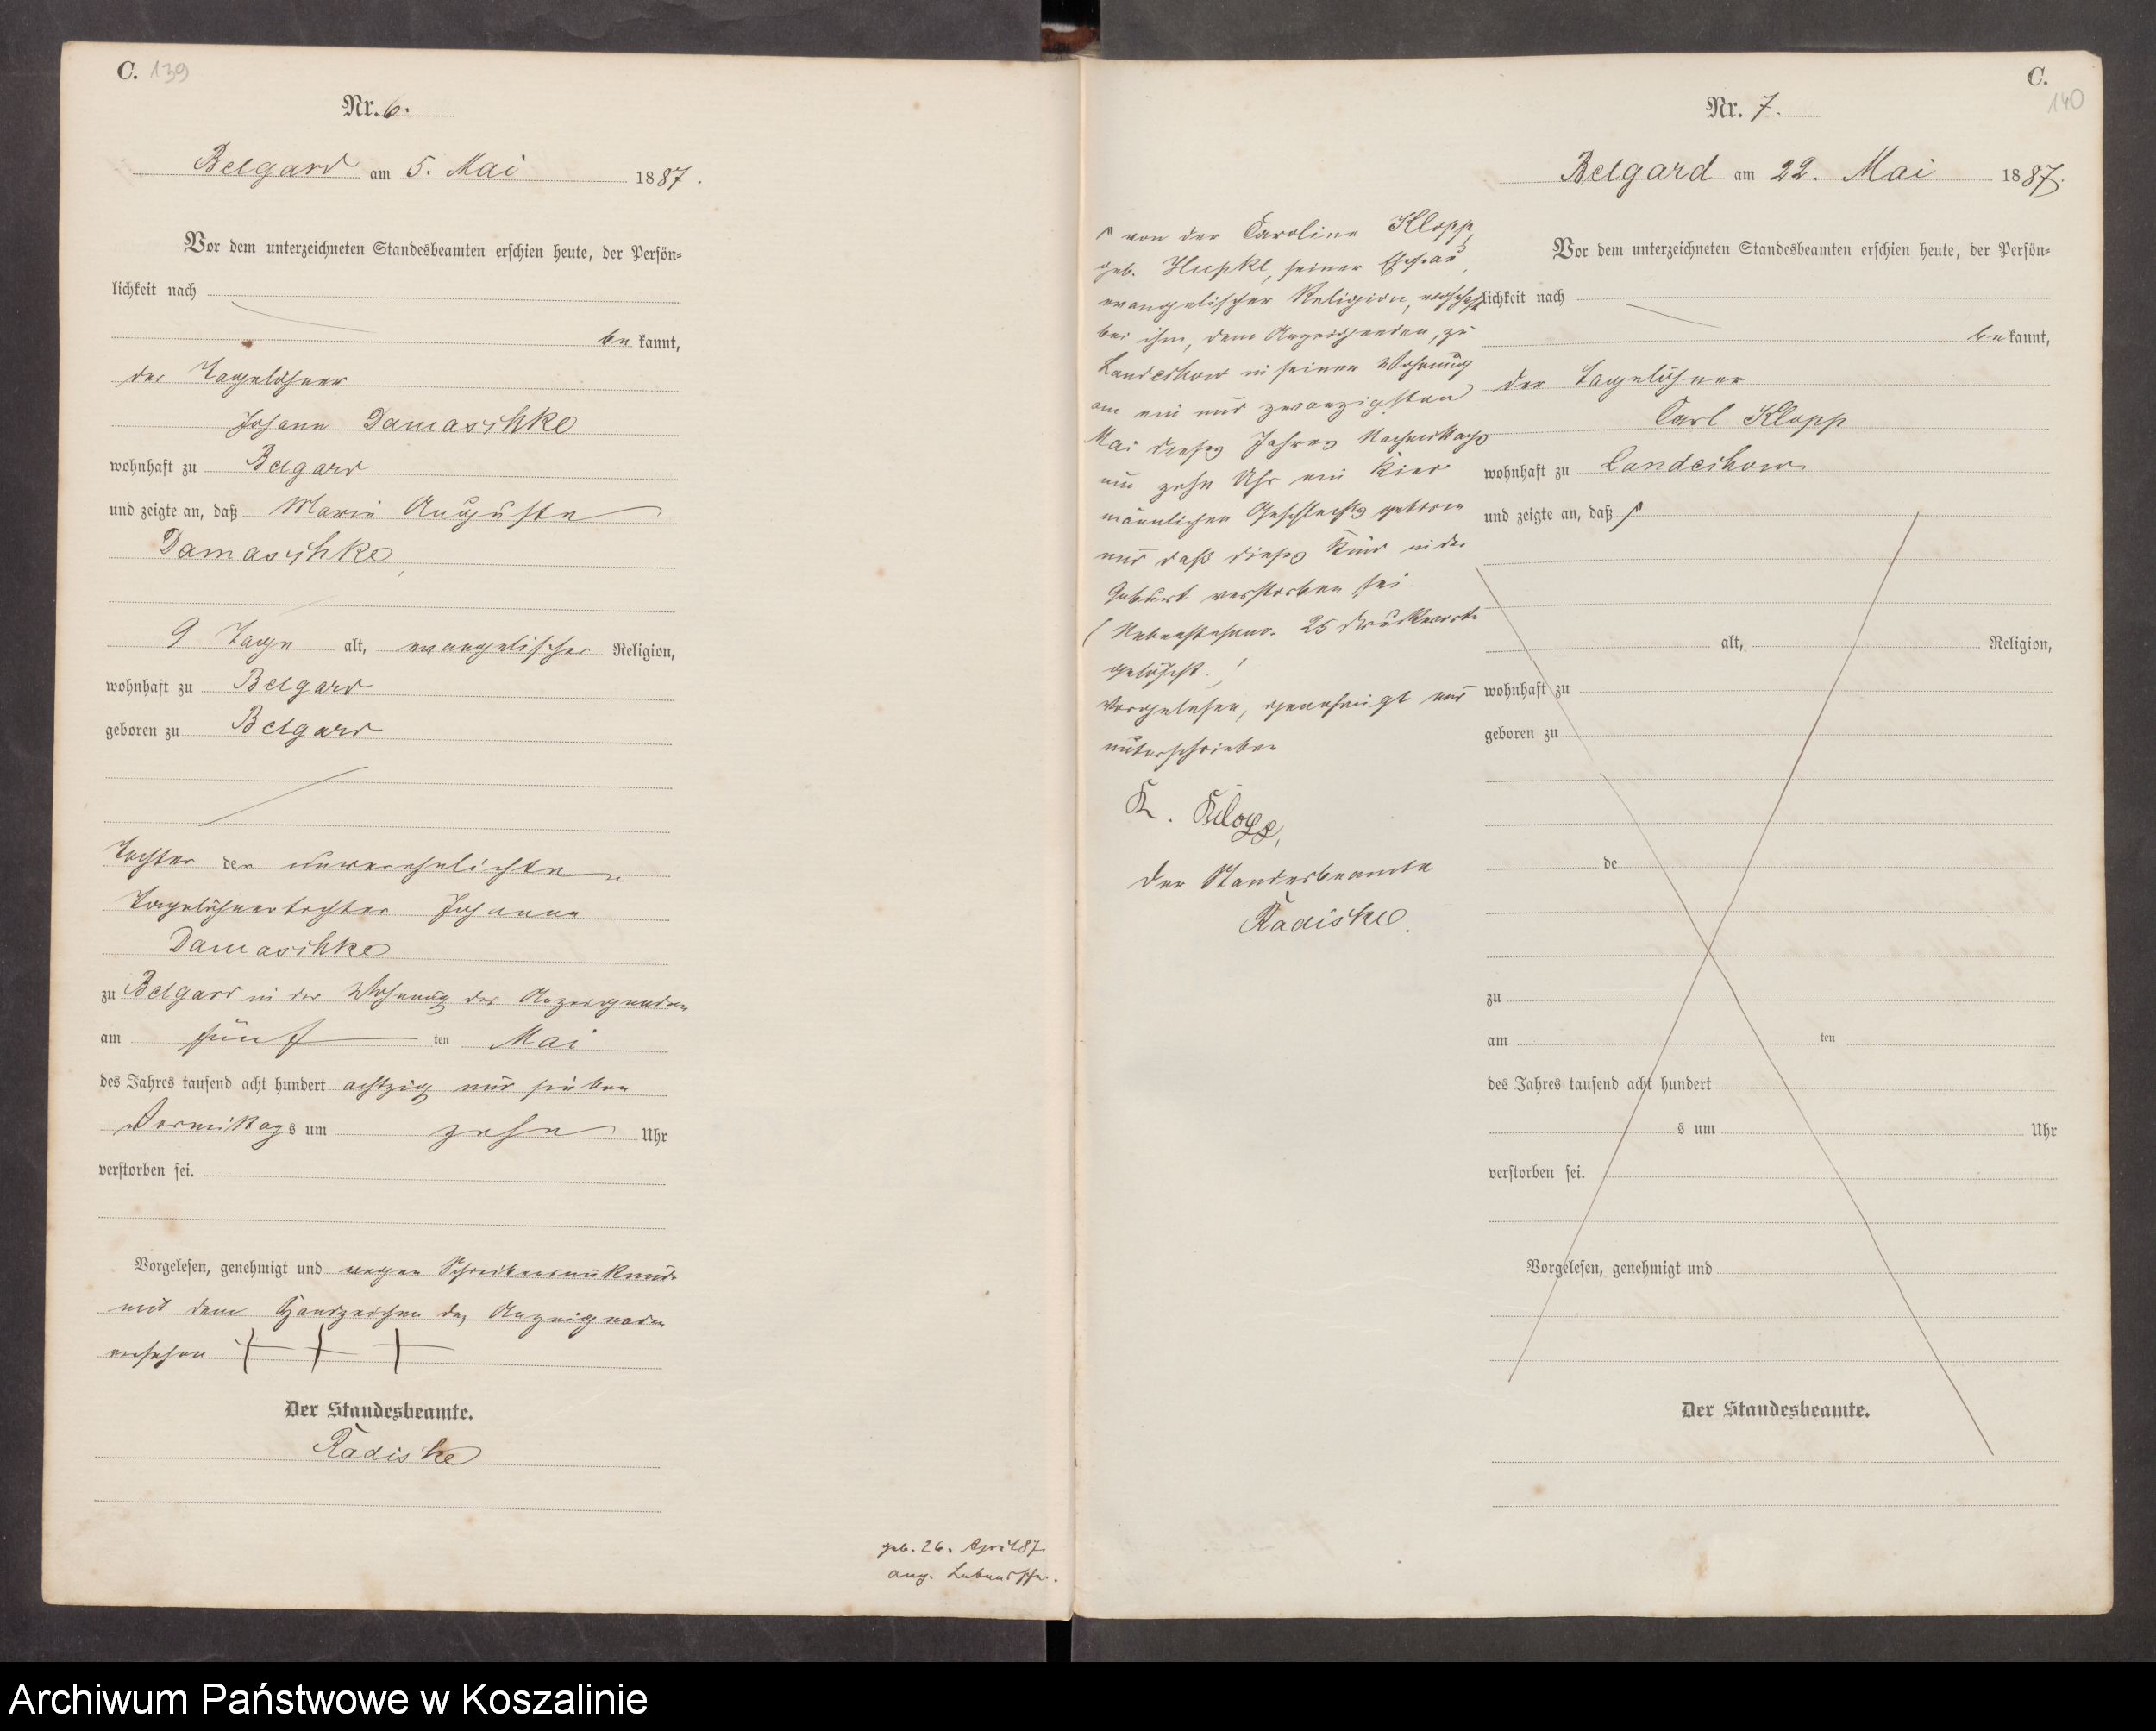 C. 139
Nr. 6.
Belgard am 5. Mai 1887.
Vor dem unterzeichneten Standesbeamten erschien heute, der Persön-
lichkeit nach
be kannt,
der Tagelöhner
Johann Damaschke
wohnhaft zu Belgard
und zeigte an, daß Marie Auguste
Damaschke,
9 Tage alt, evangelischer Religion,
wohnhaft zu Belgard
geboren zu Belgard
Tochter der unverehelichten
Tagelöhnertochter Johanne
Damaschke
zu Belgard in der Wohnung des Anzeigenden
am fünf ten Mai
des Jahres tausend acht hundert achtzig und sieben
Vormittags um zehn Uhr
verstorben sei.
Vorgelesen, genehmigt und wegen Schreibensunkunde
mit dem Handzeichen des Anzeigenden
versehen + + +
Der Standesbeamte.
Radiske
geb. 26. April 87.
ang.
C.
140
Nr. 7.
Belgard am 22. Mai 1887.
Vor dem unterzeichneten Standesbeamten erschien heute, der Persön-
lichkeit nach
be kannt,
der Tagelöhner
Carl Klopp
wohnhaft zu Landechow
und zeigte an, daß
alt, Religion,
wohnhaft zu
geboren zu
de
zu
am ten
des Jahres tausend acht hundert
s um Uhr
verstorben sei.
Vorgelesen, genehmigt und
Der Standesbeamte.
von der Caroline Klopp,
geb. Hupke, seiner Ehefrau,
evangelischer Religion, wohnhaft
bei ihm, dem Anzeigenden, zu
Landechow in seiner Wohnung
am ein und zwanzigsten
Mai dieses Jahres Nachmittags
um zehn Uhr ein Kind
männlichen Geschlechts geboren
und daß dieses Kind in der
Geburt verstorben sei.
(Nebenstehend 25 Druckworte
gelöscht.)
Vorgelesen, genehmigt und
unterschrieben
K. Klopp,
Der Standesbeamte
Radiske.
Archiwum Państwowe w Koszalinie